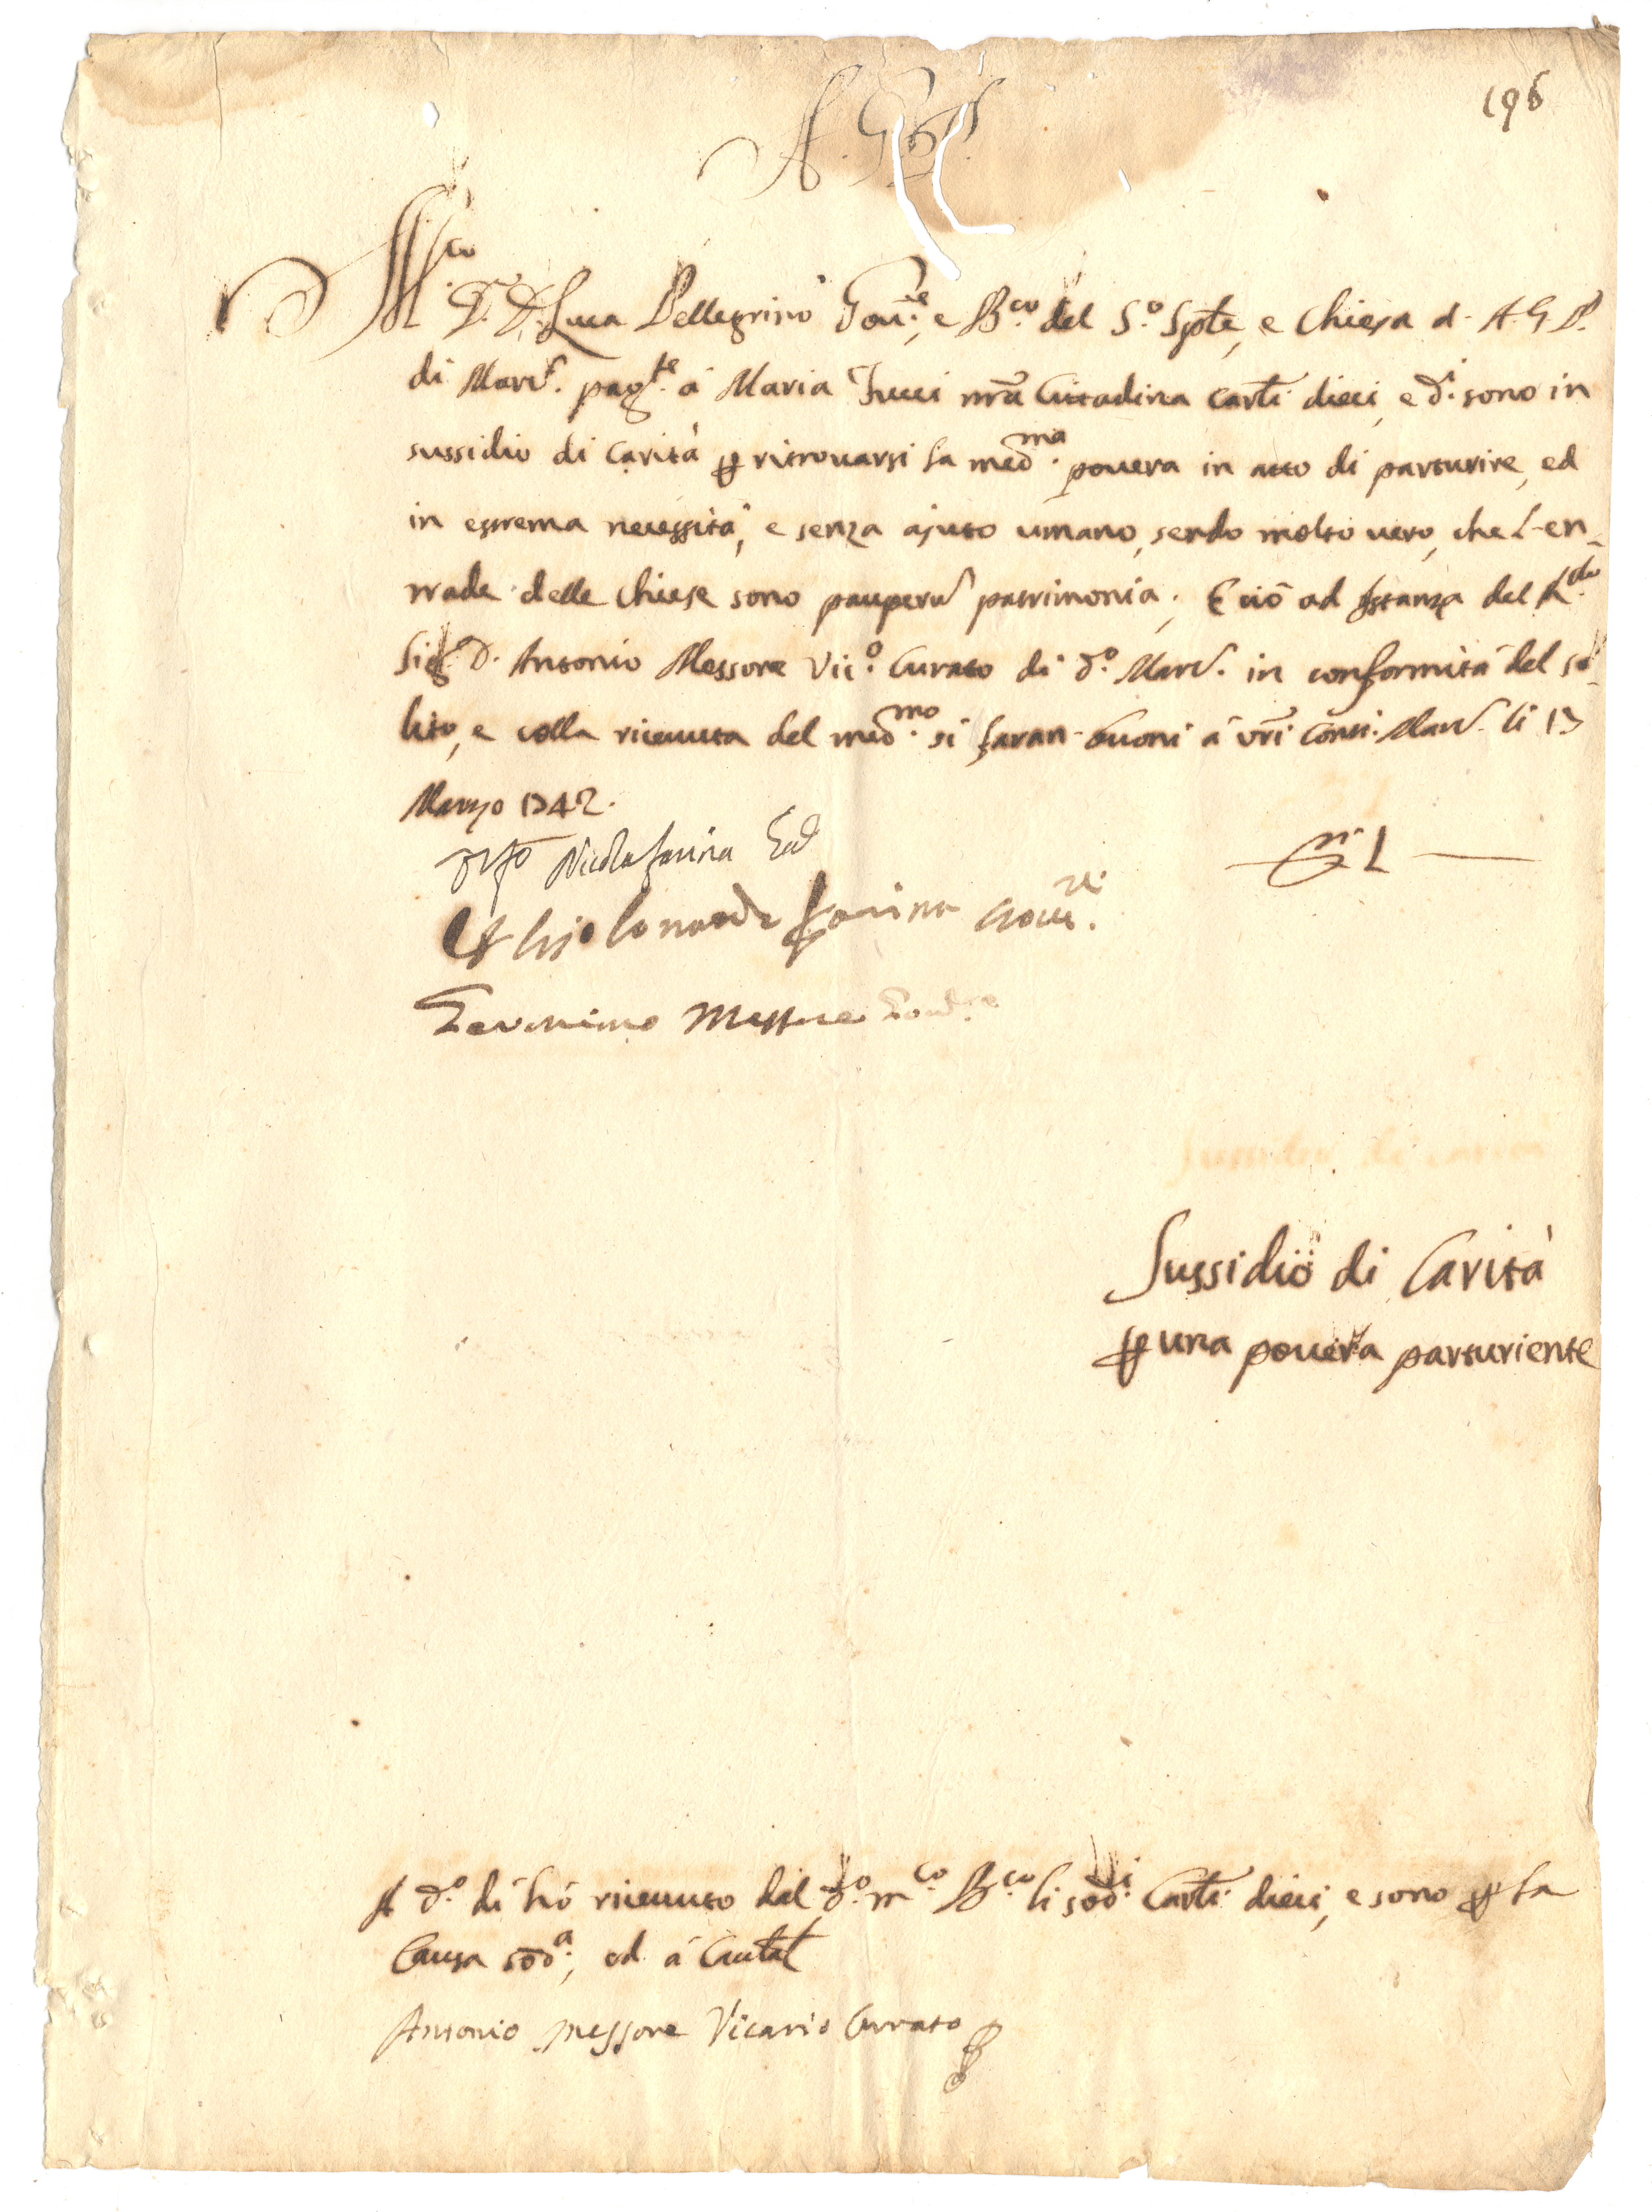 196
A. G. P.
M.co D.r D. Luca Pellegrino Gov.re, e B.co del S.o Sple, e Chiesa d. A. G. P.
di Marc.e pag.te á Maria Fucci nrã Cittadina carli dieci, e d.i sono in
sussidio di Carità p ritrovarsi la med.ma povera in atto di parturire, ed
in estrema necessità, e senza ajuto umano, sendo molto vero, che l'en-
trade delle Chiese sono pauperũ patrimonia; E ciò ad istanza del R.do
Sig.r D. Antonio Messore Vic.o Curato di d.o Marc.e in conformità del so-
lito, e colla ricevuta del med.mo si faran buoni á vrĩ conti. Marc.e li 17
Marzo 1742.
Nicola farina
farina Gov.re
Geronimo Messore Gov.re
Sussidio di Carità
p una povera parturiente
A d.o dì hò ricevuto dal d.o m.co B.co li sod.i Carli dieci, e sono p la
Causa sod.a, ed á Cautel
Antonio Messore Vicario Curato